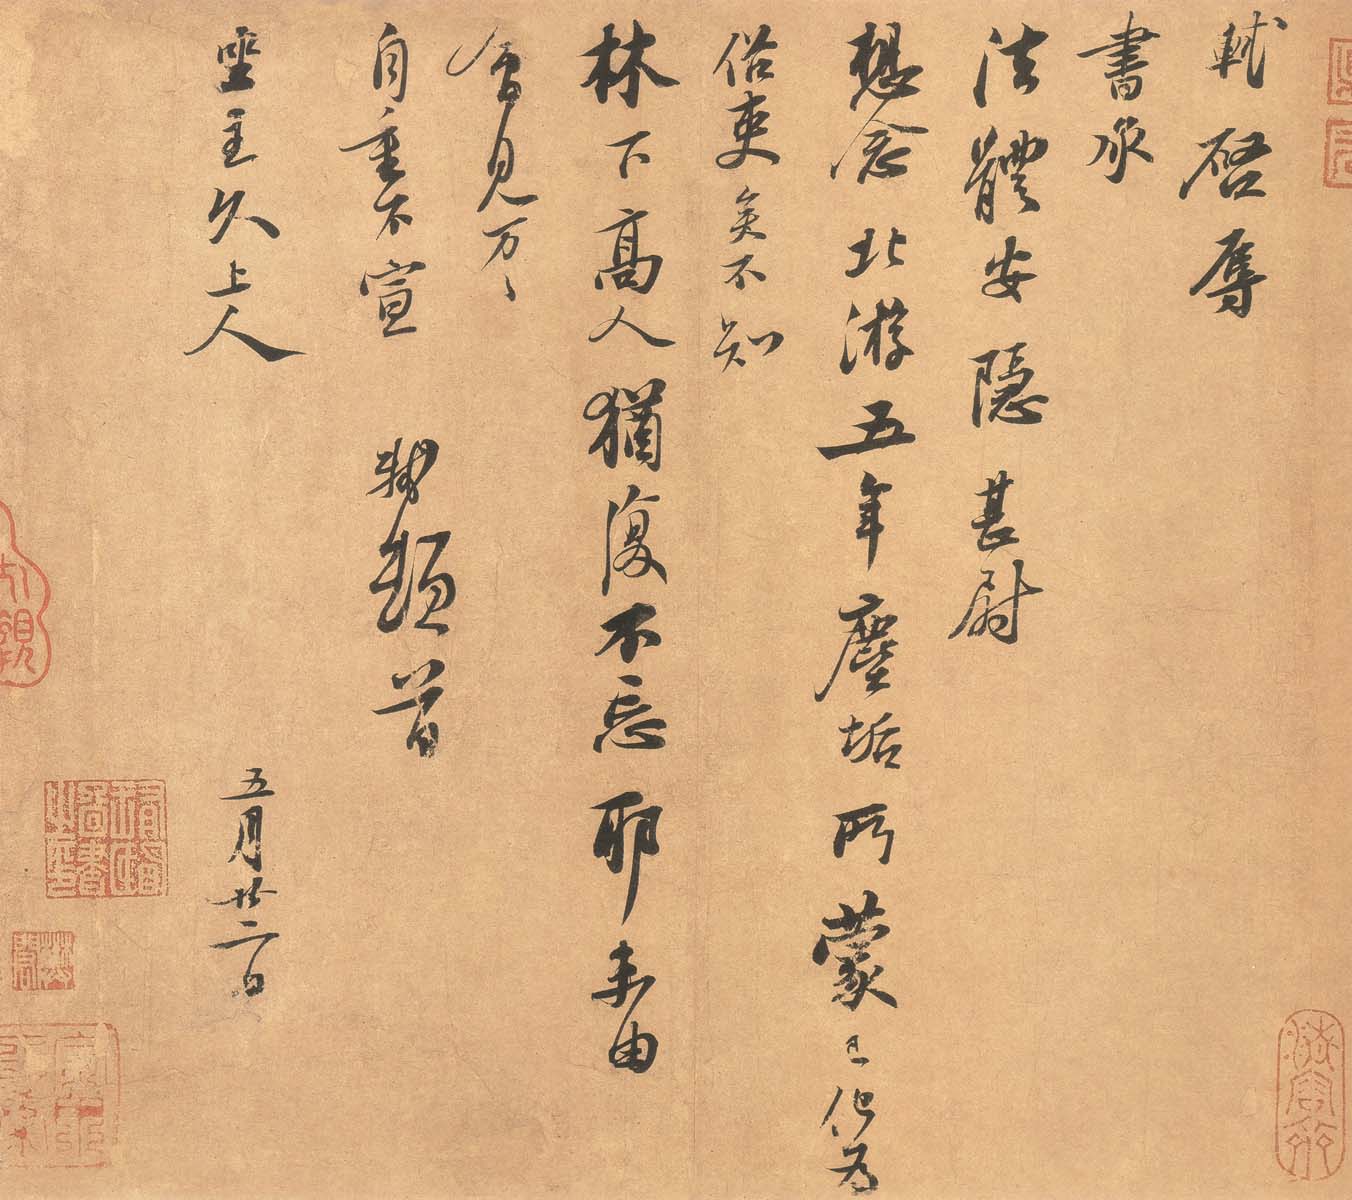 軾啓辱
書承
法體安隱甚尉
想念北游五年塵垢所蒙已化為
俗吏矣不知
林下高人猶復不忘耶未由
會見万〻
自重不宣　軾頓首
坐主久上人　五月廿二日